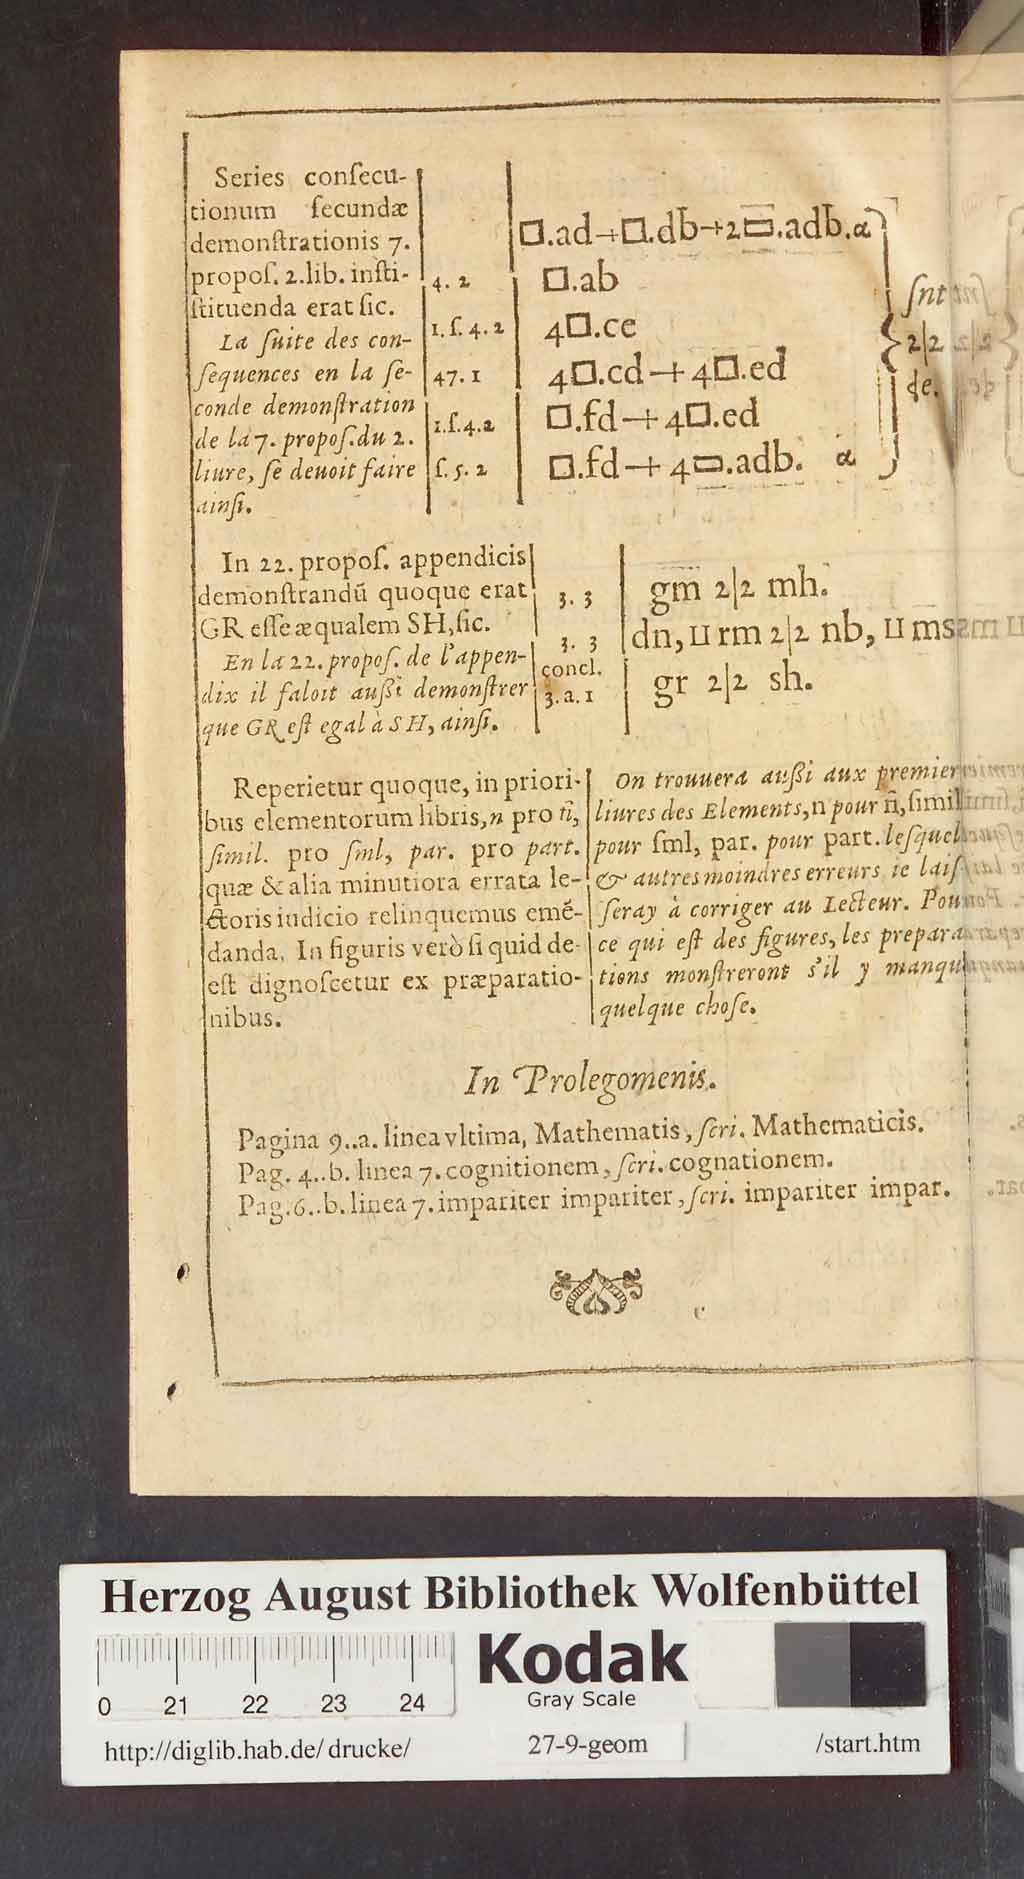 Series conſecu-
tionum ſecundæ
demonſtrationis 7.
propoſ. 2. lib. inſti-
ſtituenda erat ſic.
La ſuite des con-
ſequences en la ſe-
conde demonſtration
de la 7. propoſ. du 2.
liure, ſe deuoit faire
ainſi.
□.ad+□.db+2▭.adb.α
4. 2 □.ab
1. ſ. 4. 2 4□.ce
47. 1 4□.cd+4□.ed
1. ſ. 4. 2 □.fd+4□.ed
ſ. 5. 2 □.fd+4▭.adb. α
ſnt
2|2
de.
In 22. propoſ. appendicis
demonſtrandũ quoque erat
GR eſſe æqualem SH, ſic.
En la 22. propoſ. de l'appen-
dix il faloit außi demonſtrer
que GR eſt egal à SH, ainſi.
3. 3 gm 2|2 mh.
3. 3 dn, ⊔ rm 2|2 nb, ⊔ ms
concl.
3. a. 1 gr 2|2 sh.
Reperietur quoque, in priori-
bus elementorum libris, n pro ñ,
ſimil. pro ſml, par. pro part.
quæ & alia minutiora errata le-
ctoris iudicio relinquemus emẽ-
danda. In figuris verò ſi quid de-
eſt dignoſcetur ex præparatio-
nibus.
On trouuera außi aux premier
liures des Elements, n pour ñ, ſimil
pour ſml, par. pour part. leſquel
& autres moindres erreurs ie laiſ
ſeray à corriger au Lecteur. Pou
ce qui eſt des figures, les prepara
tions monſtreront s'il y manqu
quelque choſe.
In Prolegomenis.
Pagina 9..a. linea vltima, Mathematis, ſcri. Mathematicis.
Pag. 4..b. linea 7. cognitionem, ſcri. cognationem.
Pag. 6..b. linea 7. impariter impariter, ſcri. impariter impar.
Herzog August Bibliothek Wolfenbüttel
0 21 22 23 24
Kodak
Gray Scale
http://diglib.hab.de/drucke/ 27-9-geom /start.htm